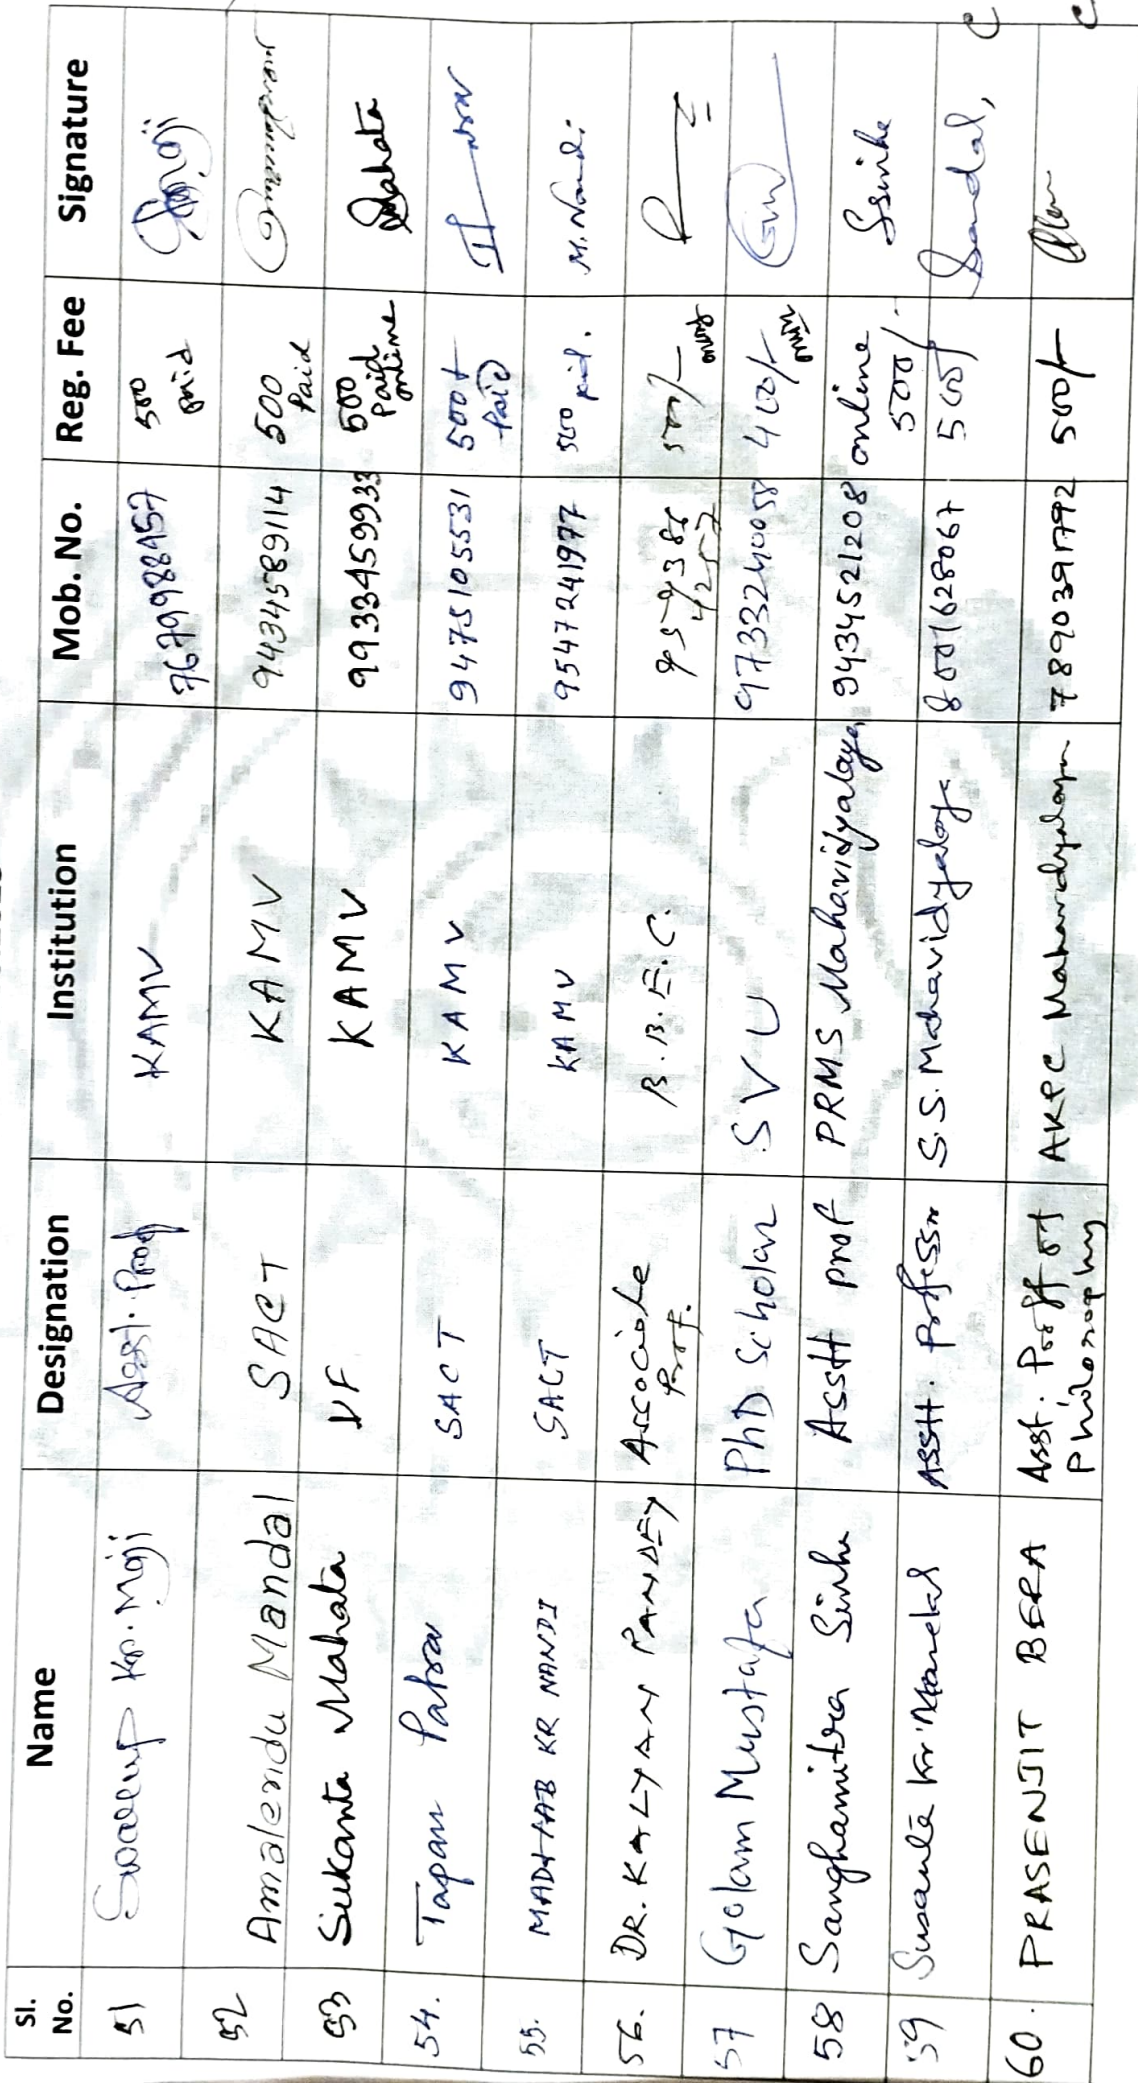 Sl. No. Name Designation Institution Mob. No. Reg. Fee Signature
51 Swarup Kr. Maji Asst. Prof KAMV 7679988457 500 paid
52 Amalendu Mandal SACT KAMV 9434589114 500 Paid
53 Sukanta Mahata VF KAMV 9933459933 500 Paid online Mahata
54. Tapan Patra SACT KAMV 9475105531 500/- Paid
55. MADHAB KR NANDI SACT KAMV 9547241977 500 paid. M. Nandi
56. DR. KALYAN PANDEY Associate Prof. B.B.E.C. 500/-
57 Golam Mustafa PhD Scholar SVU 9733240058 400/-
58 Sanghamitra Sinha Asstt Prof PRMS Mahavidyalaya 9434521208 online 500/- SSinha
59 Susanta Kr. Mandal Asstt. Professor S.S. Mahavidyalaya 8001628067 500/- Mandal,
60. PRASENJIT BERA Asst. Proff of Philosophy AKPC Mahavidyalaya 7890391792 500/-